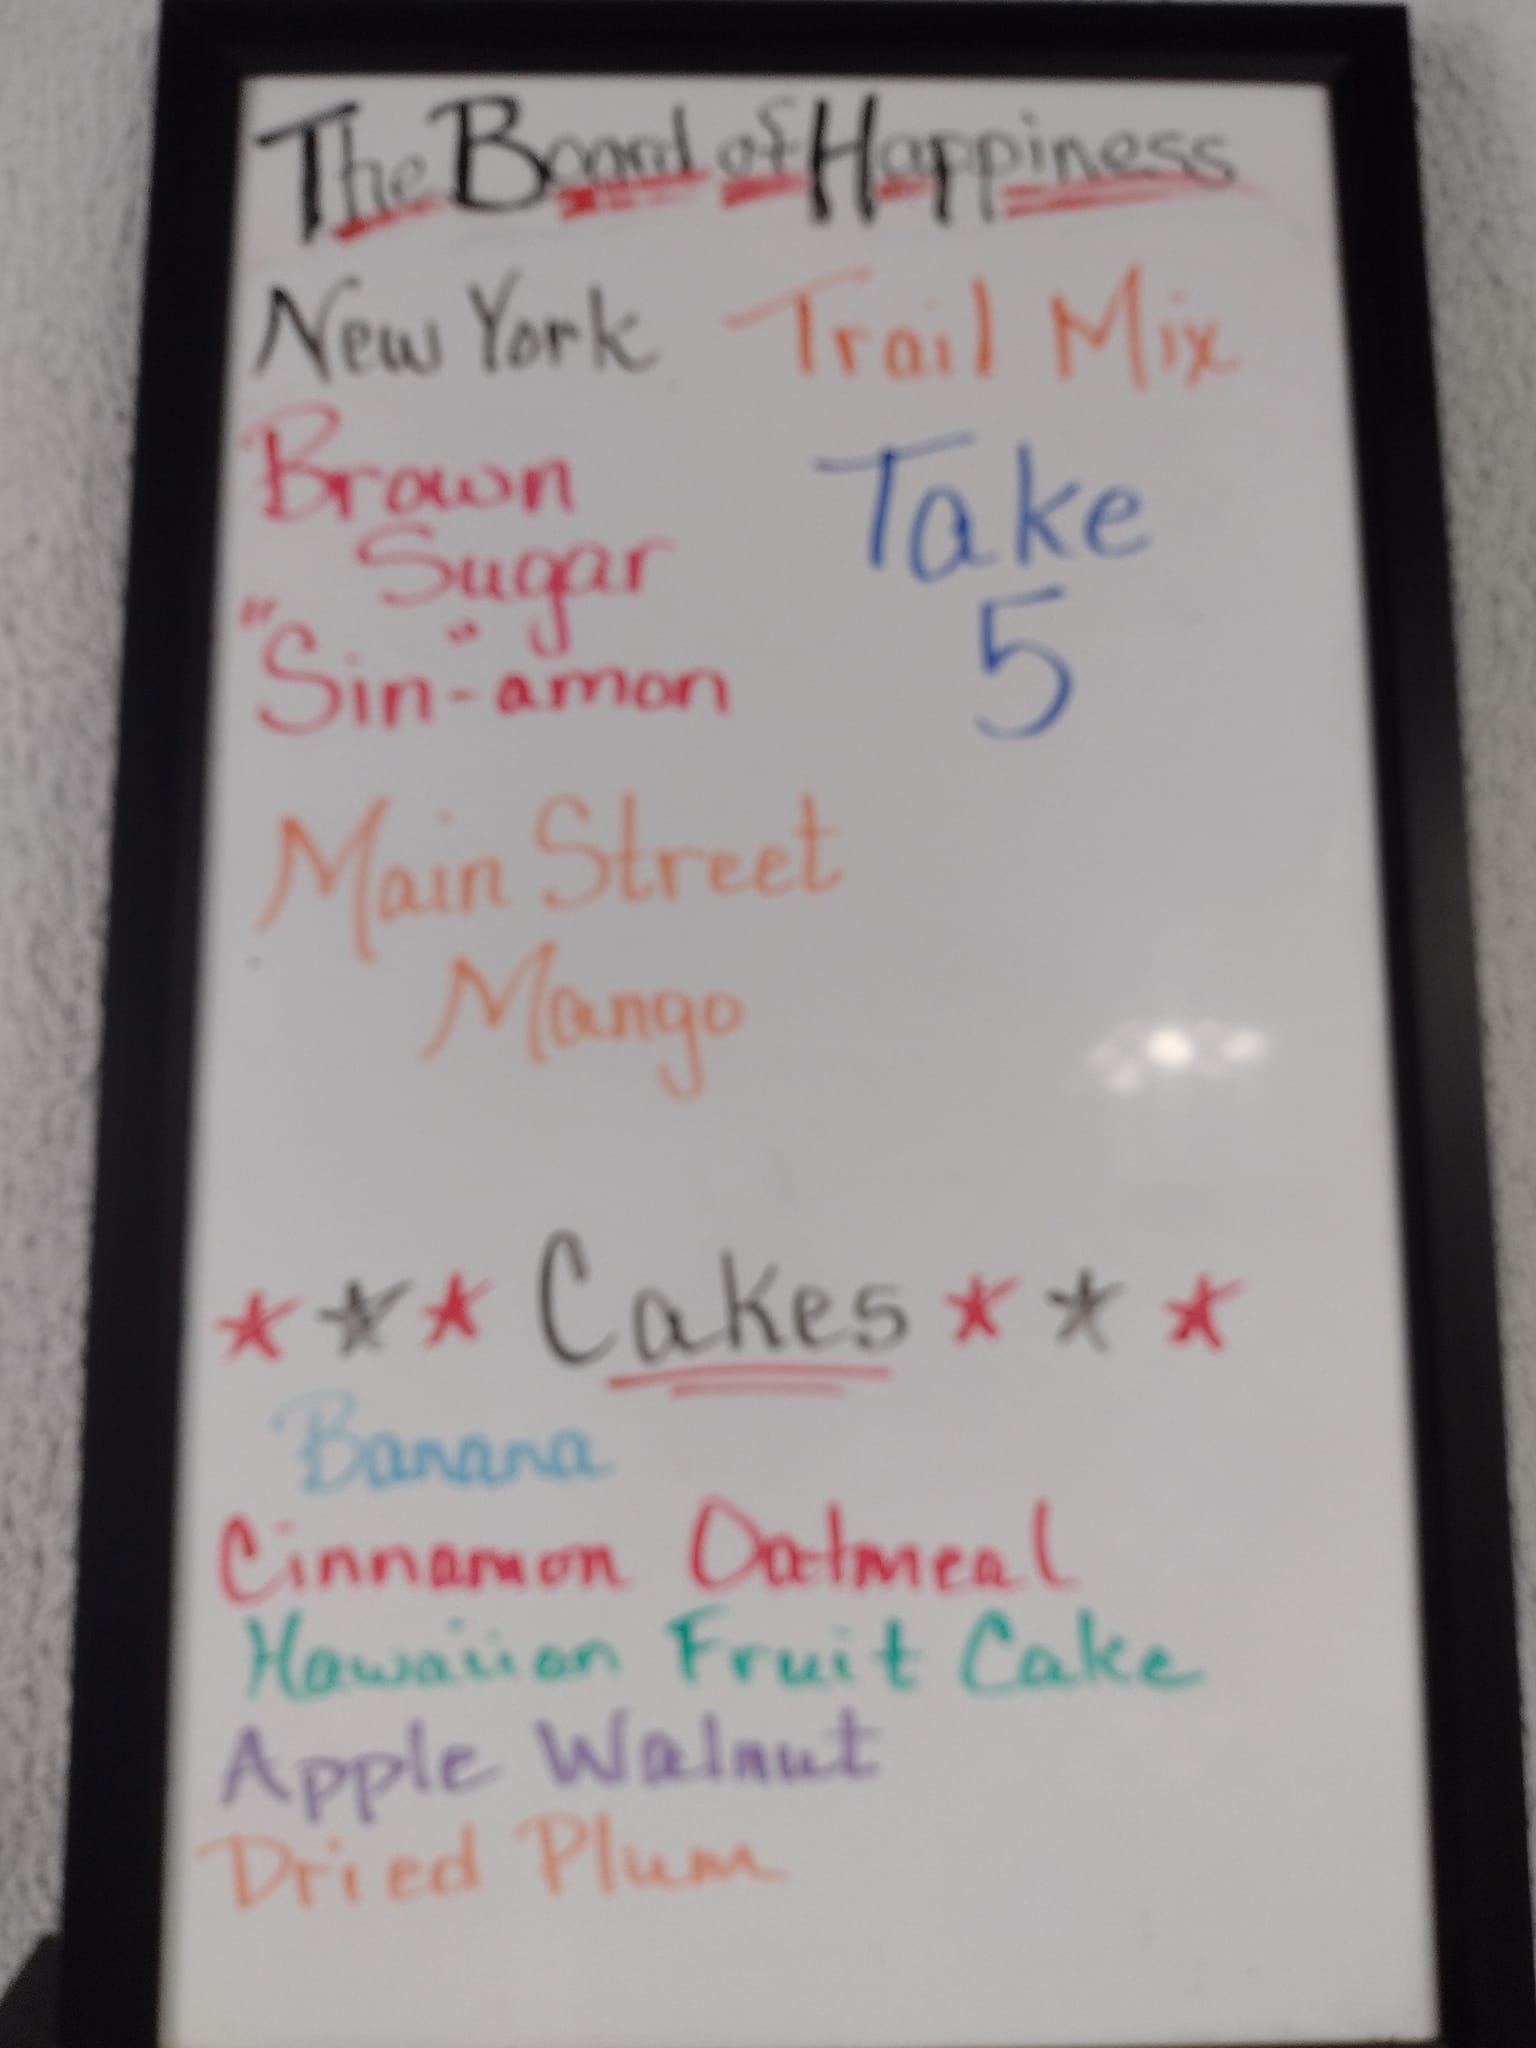 The Board of Happiness
New York
Brown
Sugar
"Sin-"amon
Main Street
Mango
Trail Mix
Take
5
Cakes
Banana
Cinnamon Oatmeal
Hawaiian Fruit Cake
Apple Walnut
Dried Plum